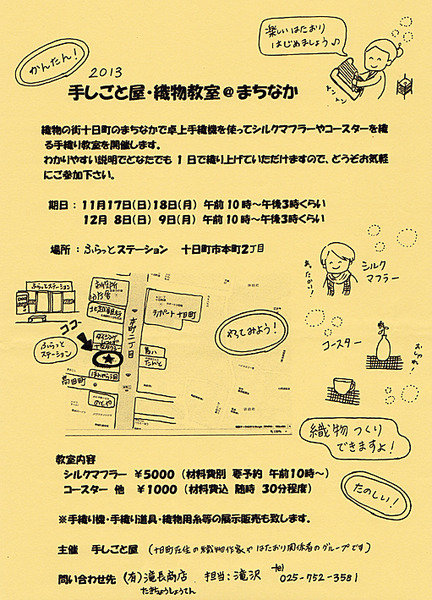 楽しいはたおり
はじめましょう♪
かんたん!
トントン
2013
手しごと屋・織物教室@まちなか
織物の街十日町のまちなかで卓上手織機を使ってシルクマフラーやコースターを織
る手織り教室を開催します。
わかりやすい説明でどなたでも1日で織り上げていただけますので、どうぞお気軽
にご参加下さい。
期日:11月17日(日)18日(月) 午前10時~午後3時くらい
12月 8日(日) 9日(月) 午前10時~午後3時くらい
場所:ふらっとステーション 十日町市本町2丁目
シルク
マフラー
あったか!
ふらっとステーション
ココ
ふらっと
ステーション
本町二丁目
リオポート十日町
やってみよう!
コースター
織物つくり
できますよ!
たのしい!
教室内容
シルクマフラー ¥5000(材料費別 要予約 午前10時~)
コースター 他 ¥1000(材料費込 随時 30分程度)
※手織り機・手織り道具・織物用糸等の展示販売も致します。
主催 手しごと屋(十日町在住の織物作家やはたおり関係者のグループです)
問い合わせ先 (有)滝長商店 担当:滝沢 tel 025-752-3581
たきちょうしょうてん